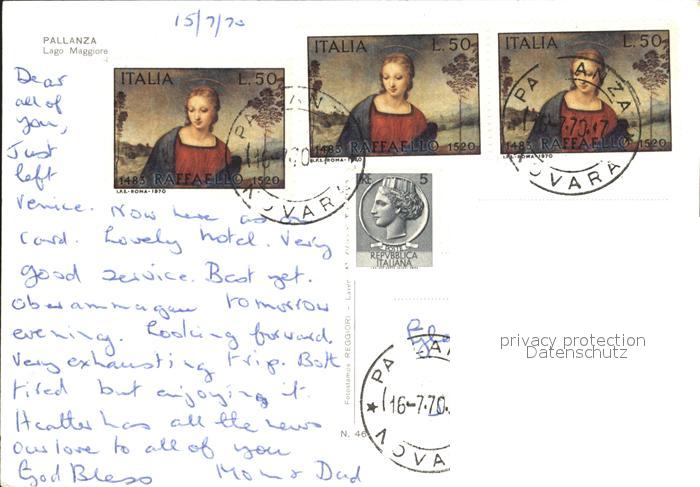 15/7/70
PALLANZA
Lago Maggiore
Dear
all of
you,
Just
left
Venice. Now here as on
card. Lovely hotel. Very
good service. Best yet.
Oberammagau tomorrow
evening. Looking forward.
Very exhausting trip. Both
tired but enjoying it.
Heather has all the news
Our love to all of you
God Bless Mom & Dad
ITALIA L.50
1483 RAFFAELLO 1520
I.P.S.-ROMA-1970
ITALIA L.50
1483 RAFFAELLO 1520
I.P.S.-ROMA-1970
ITALIA L.50
1483 RAFFAELLO 1520
I.P.S.-ROMA-1970
PALLANZA
16-7.70.17
NOVARA
LIRE 5
POSTE
REPVBBLICA
ITALIANA
Fotostampa REGGIORI - Laveno
N. 46
privacy protection
Datenschutz
PALLANZA
16-7.70.
NOVARA